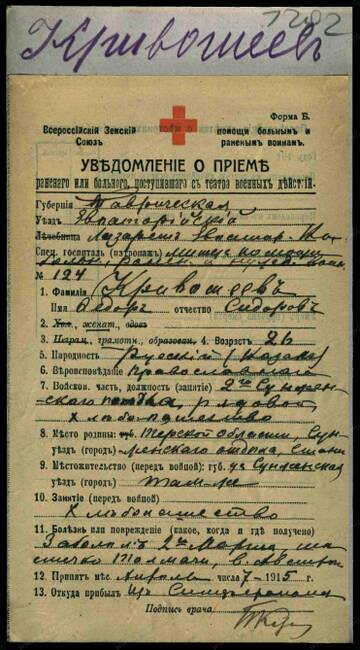 1282
Кривошеевъ
Форма Б.
Всероссійскій Земскій Союзъ
помощи больнымъ и раненымъ воинамъ.
УВѢДОМЛЕНІЕ О ПРІЕМѢ
раненаго или больного, поступившаго съ театра военныхъ дѣйствій.
Губернія Таврическая
Уѣздъ Евпаторійскій
Лѣчебница Лазаретъ Евпатор.
Спец. госпиталь (патронаж.)
№ 124
1. Фамилія Кривошеевъ
Имя Ѳедоръ отчество Сидоровъ
2. Хол., женат., вдовъ
3. Неграм., грамотн., образован. 4. Возрастъ 26
5. Народность Русскій (Казакъ)
6. Вѣроисповѣданіе Православнаго
7. Войсков. часть, должность (занятіе) 2го Сунжен-
скаго полка, рядовой,
Хлебопашество
8. Мѣсто родины: губ. Терской области, Сун-
уѣздъ (городъ) женскаго отдѣла,
9. Мѣстожительство (передъ войной): губ. Сунженская
уѣздъ (городъ) там-же
10. Занятіе (передъ войной)
Хлебопашество
11. Болѣзнь или поврежденіе (какое, когда и гдѣ получено)
Заболѣлъ 2го Марта,
12. Принятъ мѣс. Апрѣль числа 7 - 1915 г.
13. Откуда прибылъ Из Симферополя
Подпись врача